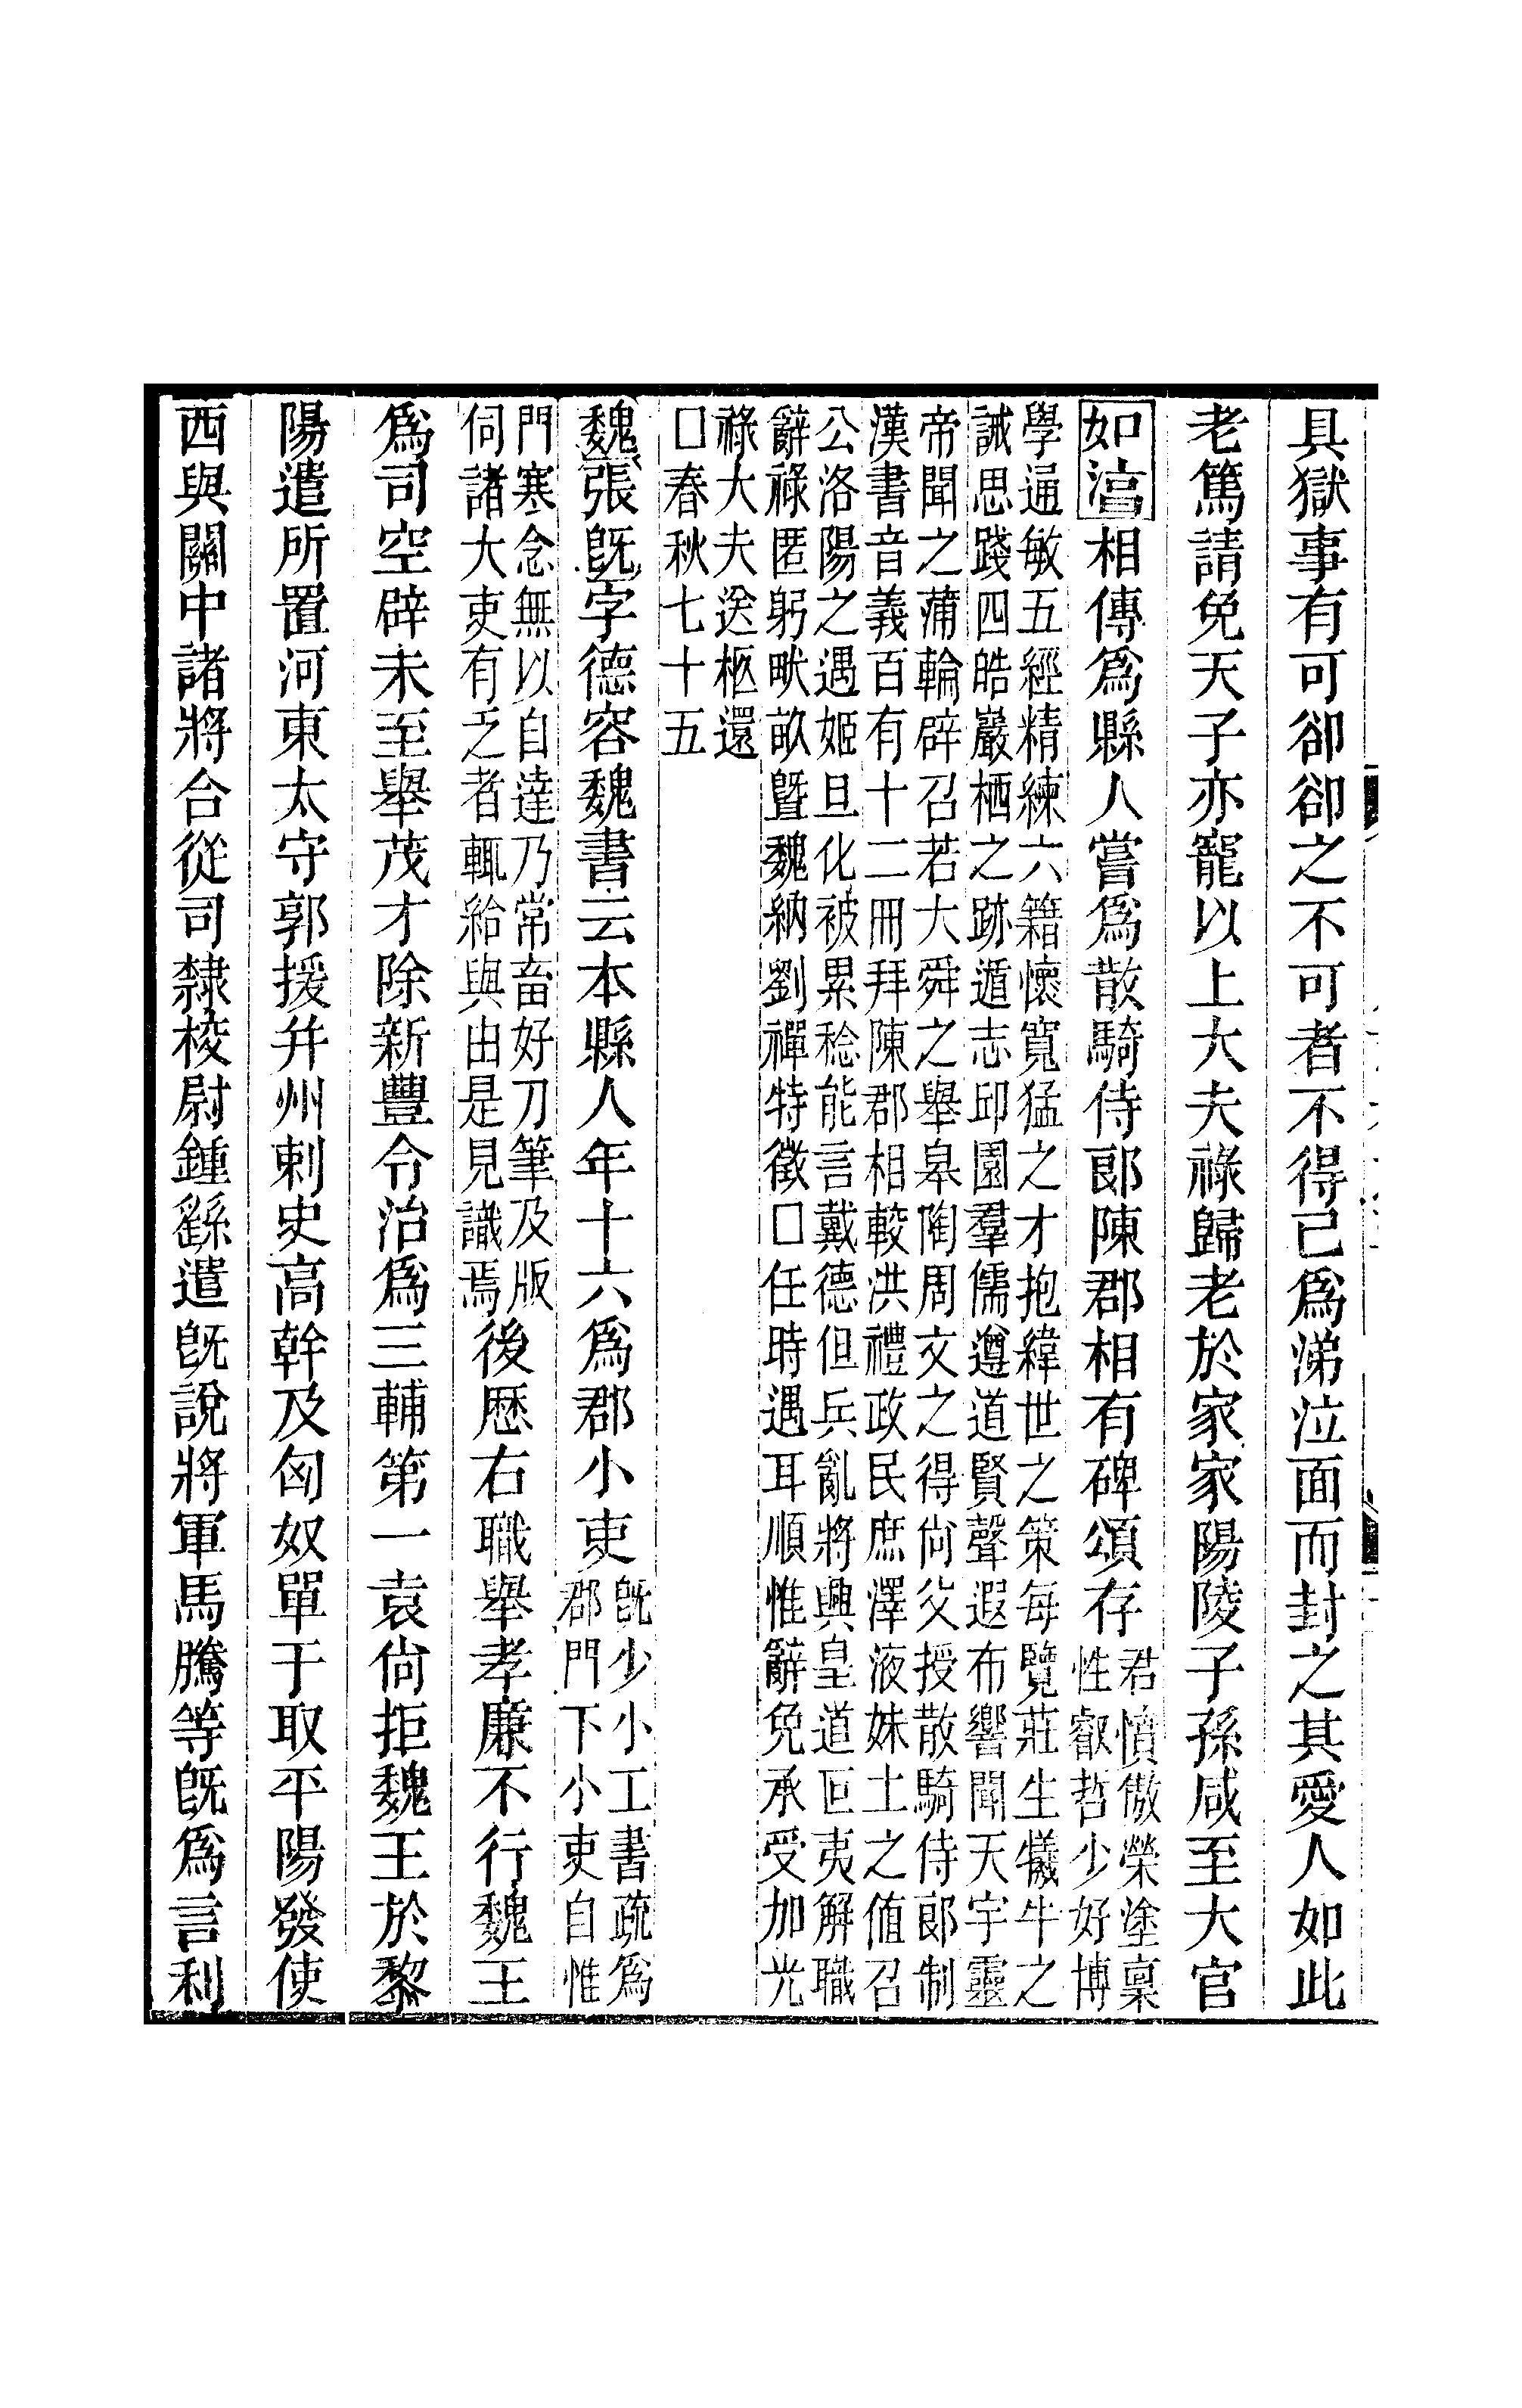 具獄事有可卻卻之不可者不得已爲涕泣面而封之其愛人如此
老篤請免天子亦寵以上大夫祿歸老於家家陽陵子孫咸至大官
如湻相傳爲縣人嘗爲散騎侍郞陳郡相有碑頌存
君憤傲榮塗稟
性叡哲少好博
學通敏五經精練六籍懷寬猛之才抱緯世之策每覽莊生犧牛之
誡思踐四皓巖栖之跡遁志邱園羣儒遵道賢聲遐布響聞天宇靈
帝聞之蒲輪辟召若大舜之舉皋陶周文之得尙父授散騎侍郞制
漢書音義百有十二冊拜陳郡相較洪禮政民庶澤液妹土之値召
公洛陽之遇姬旦化被累稔能言戴德但兵亂將興皇道叵夷解職
辭祿匿躬畎畝曁魏納劉禪特徵□任時遇耳順惟辭免承受加光
祿大夫送柩還
□春秋七十五
魏張旣字德容魏書云本縣人年十六爲郡小吏
旣少小工書疏爲
郡門下小吏自惟
門寒念無以自達乃常畜好刀筆及版
伺諸大吏有乏者輒給與由是見識焉
後歷右職舉孝廉不行魏王
爲司空辟未至舉茂才除新豐令治爲三輔第一袁尙拒魏王於黎
陽遣所置河東太守郭援幷州刺史高幹及匈奴單于取平陽發使
西與關中諸將合從司隸校尉鍾繇遣旣說將軍馬騰等旣爲言利